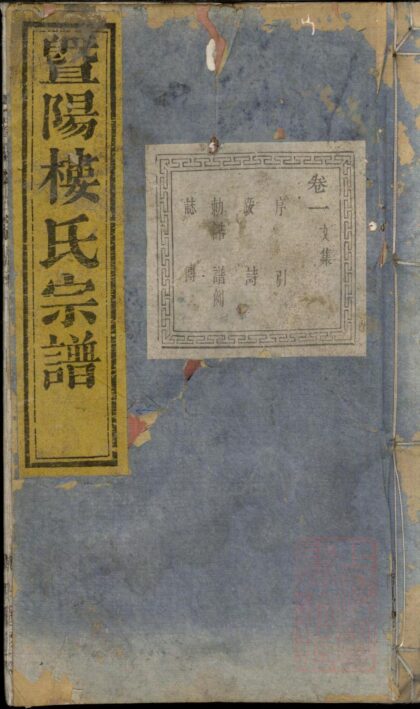 暨陽樓氏宗譜
卷一 文集
序 引
詩
勅 譜
誌 傳